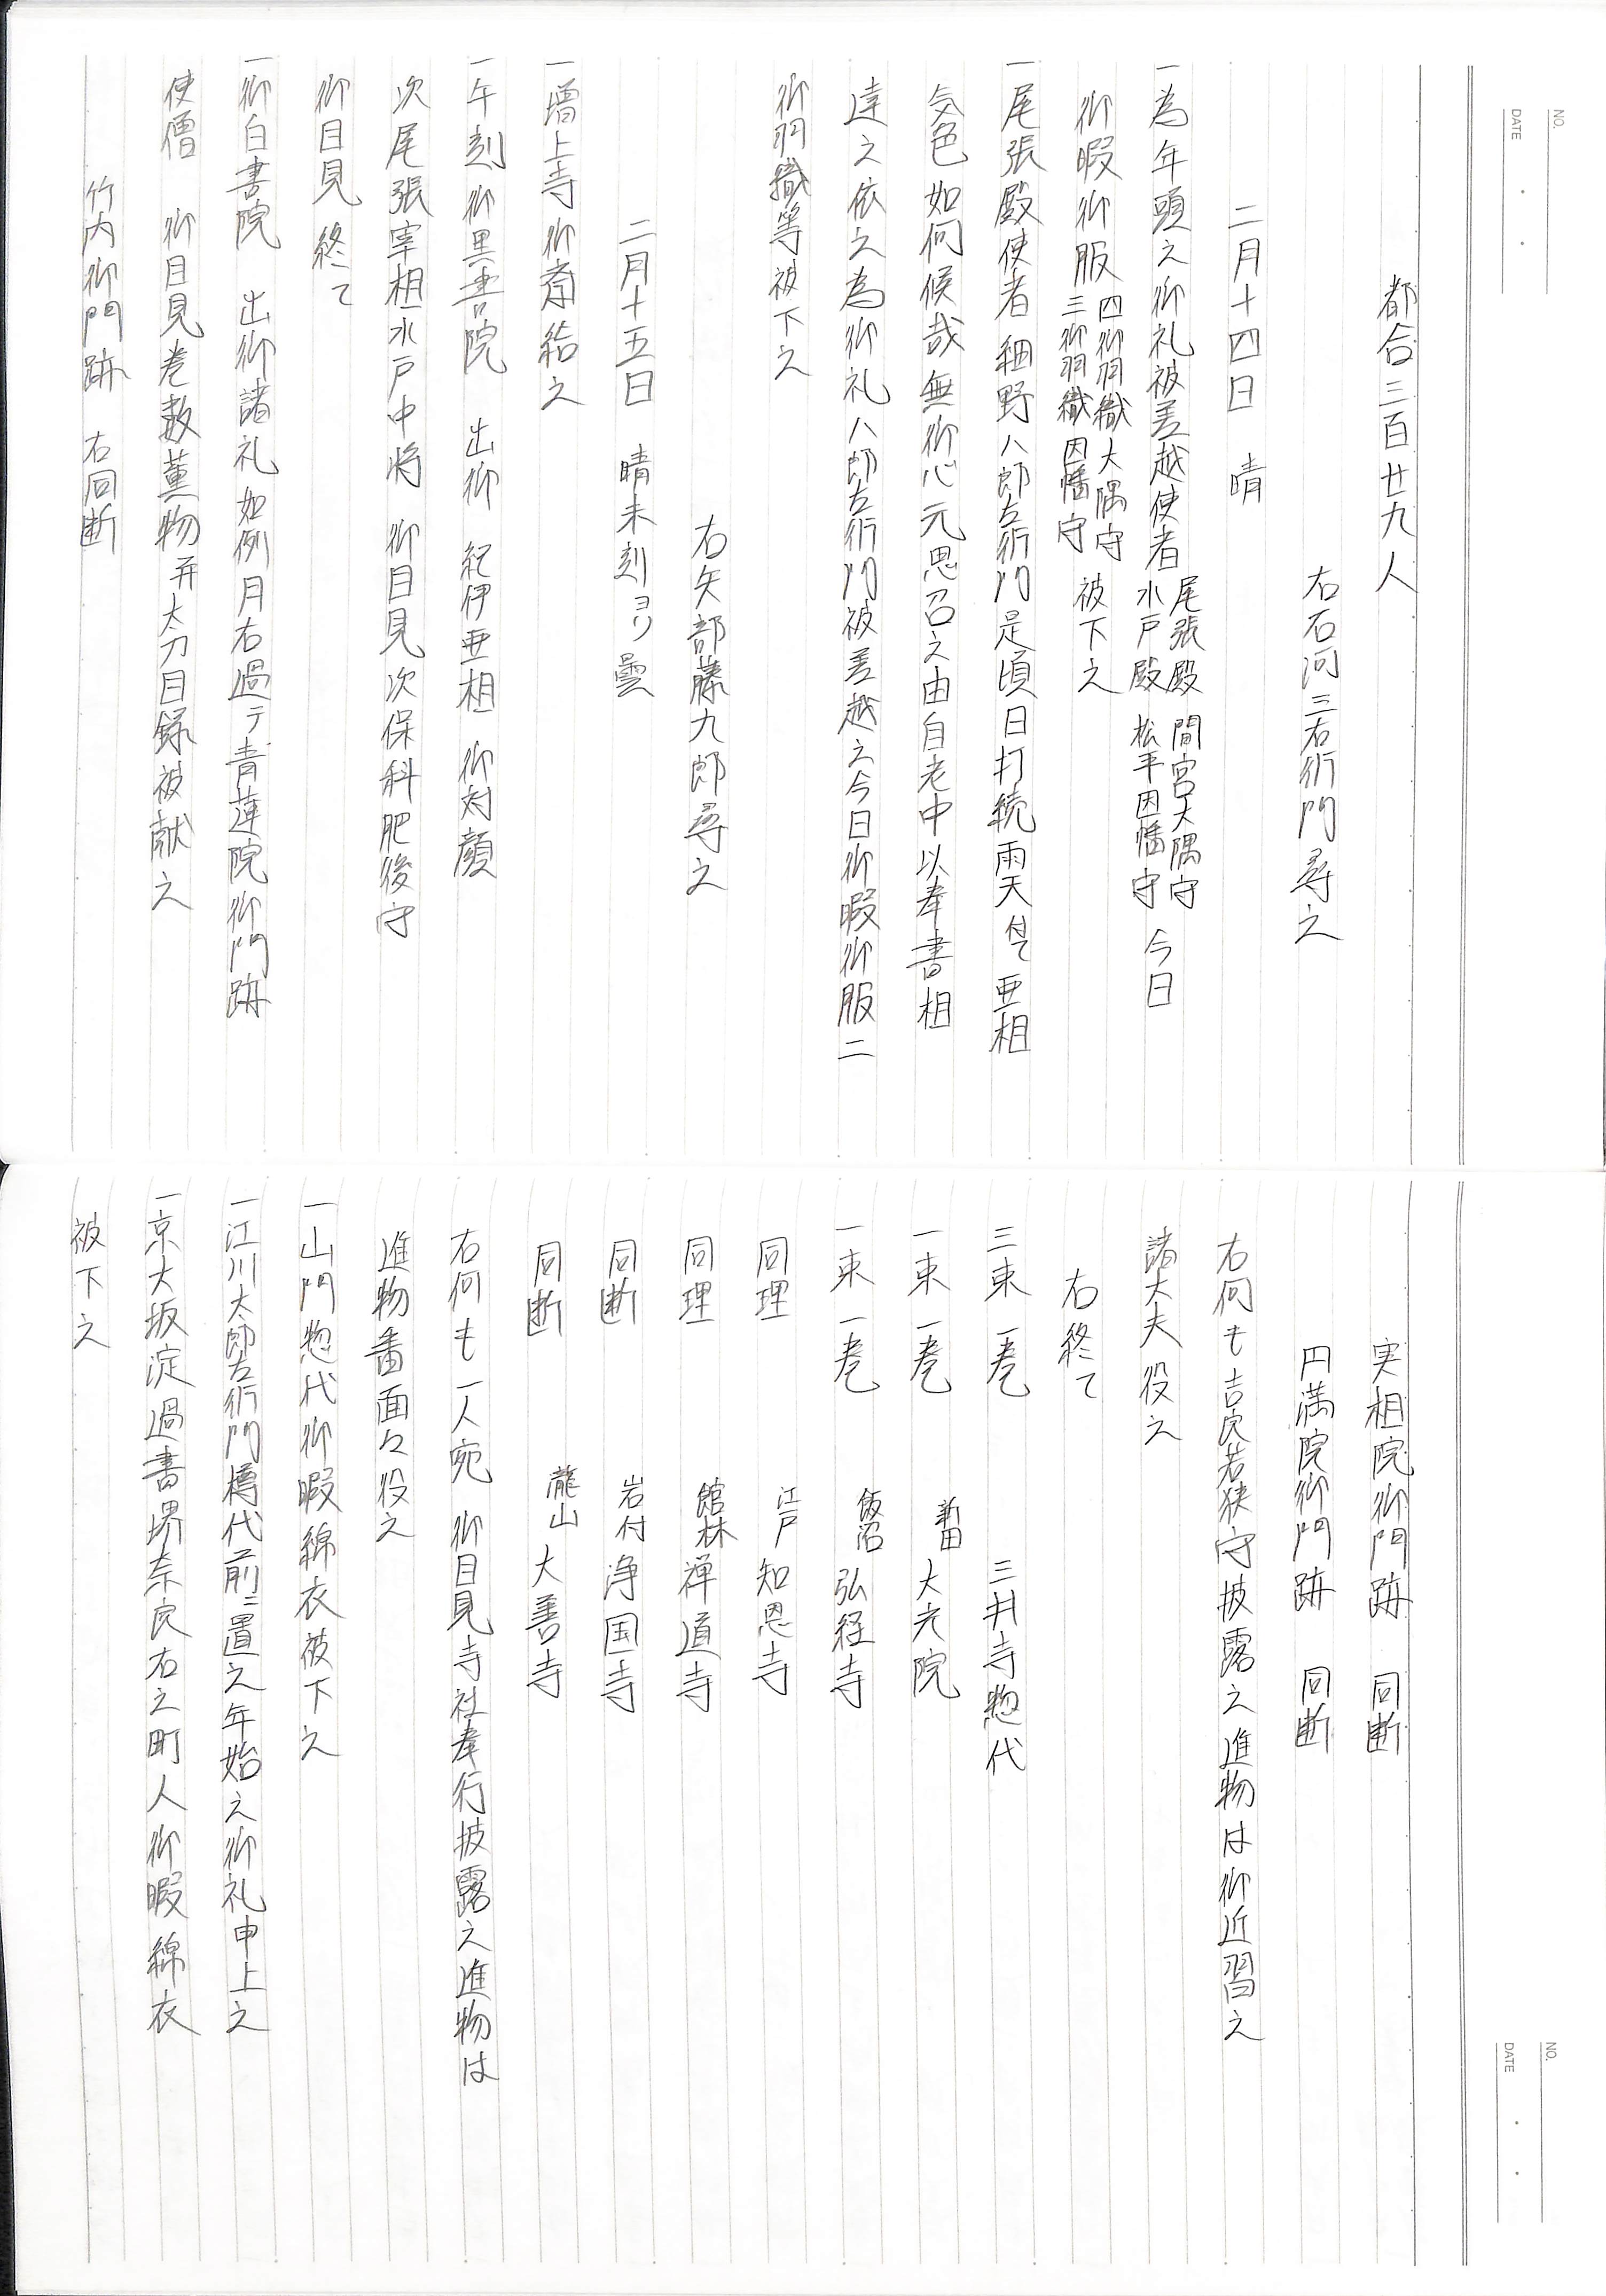 都合三百廿九人
右石河三右衛門尋之
二月十四日 晴
一為年頭之御礼被差越使者 尾張殿 間宮大隅守 水戸殿 松平因幡守 今日
御暇御服 四御羽織大隅守 三御羽織因幡守 被下之
一尾張殿使者 細野八郎左衛門是頃日打続雨天付て亜相
気色如何候哉無御心元思召之由自老中以奉書相
達之依之為御礼八郎左衛門被差越之今日御暇御服二
御羽織等被下之
右矢部藤九郎尋之
二月十五日 晴未刻ヨリ曇
一増上寺御斎給之
一午刻御黒書院 出御 紀伊亜相 御対顔
次尾張宰相水戸中将 御目見次保科肥後守
御目見終て
一御白書院 出御諸礼如例月右過テ青蓮院御門跡
使僧 御目見巻数薫物并太刀目録被献之
竹内御門跡 右同断
実相院御門跡 同断
円満院御門跡 同断
右何も吉良若狭守披露之進物は御近習之
諸大夫役之
右終て
三束一巻 三井寺惣代
一束一巻 新田 大光院
一束一巻 飯沼 弘経寺
同理 江戸 知恩寺
同理 館林 禅道寺
同断 岩付 浄国寺
同断 瀧山 大善寺
右何も一人宛 御目見寺社奉行披露之進物は
進物番面々役之
一山門惣代御暇綿衣被下之
一江川太郎左衛門樽代前ニ置之年始之御礼申上之
一京大坂淀過書堺奈良右之町人御暇綿衣
被下之
NO.
DATE ・ ・
NO.
DATE ・ ・